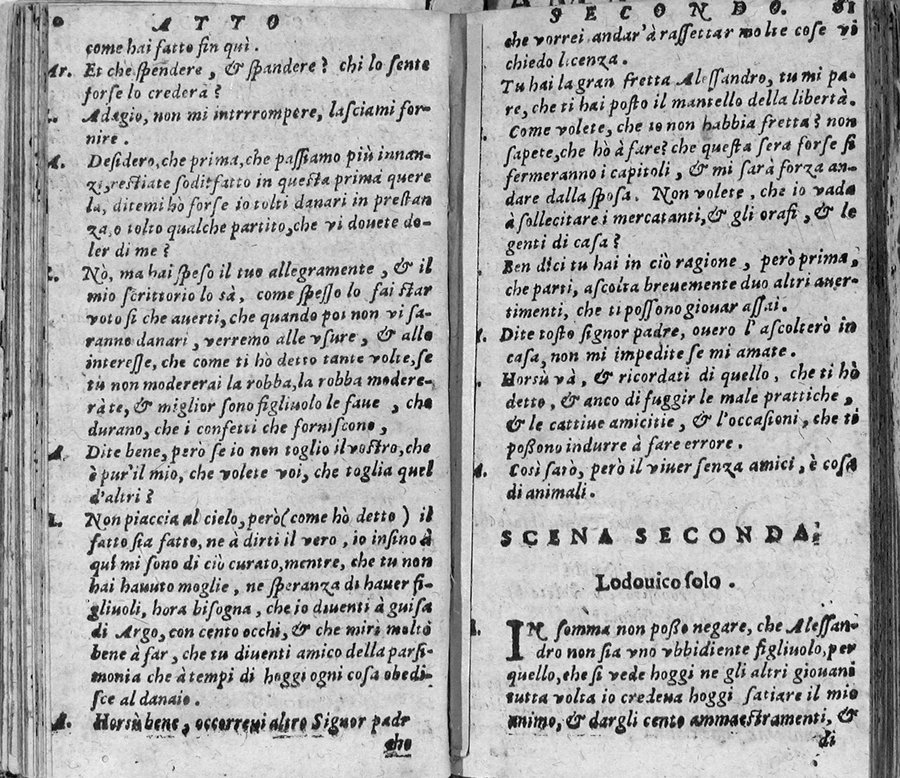 ATTO
come hai fatto fin quì.
Ar. Et che spendere, & spandere? chi lo sente
forse lo crederà?
L. Adagio, non mi intrrrompere, lasciami for-
nire.
A. Desidero, che prima, che passiamo più innan-
zi, restiate sodisfatto in questa prima quere
la, ditemi hò forse io tolti danari in prestan
za, o tolto qualche partito, che vi douete do-
ler di me?
L. Nò, ma hai speso il tuo allegramente, & il
mio scrittorio lo sà, come spesso lo fai star
voto sì che auerti, che quando poi non vi sa-
ranno danari, verremo alle vsure, & allo
interesse, che come ti hò detto tante volte, se
tù non modererai la robba, la robba modere-
ràte, & miglior sono figliuolo le faue, che
durano, che i confetti che forniscono,
A. Dite bene, però se io non toglio il vostro, che
è pur'il mio, che volete voi, che toglia quel
d'altri?
L. Non piaccia al cielo, però (come hò detto) il
fatto sia fatto, ne à dirti il vero, io insino à
quì mi sono di ciò curato, mentre, che tu non
hai hauuto moglie, ne speranza di hauer fi-
gliuoli, hora bisogna, che io diuenti à guisa
di Argo, con cento occhi, & che miri molto
bene à far, che tu diuenti amico della parsi-
monia che à tempi di hoggi ogni cosa obedi-
sce al danaio.
A. Horsù bene, occorreui altro Signor padr
che
SECONDO. 81
che vorrei andar'à rassettar molte cose vi
chiedo licenza.
Tu hai la gran fretta Alessandro, tu mi pa-
re, che ti hai posto il mantello della libertà.
Come volete, che io non habbia fretta? non
sapete, che hò à fare? che questa sera forse si
fermeranno i capitoli, & mi sarà forza an-
dare dalla sposa. Non volete, che io vada
à sollecitare i mercatanti, & gli orafi, & le
genti di casa?
Ben dici tu hai in ciò ragione, però prima,
che parti, ascolta breuemente duo altri auer-
timenti, che ti possono giouar assai.
A. Dite tosto signor padre, ouero l'ascolterò in
casa, non mi impedite se mi amate.
Horsù và, & ricordati di quello, che ti hò
detto, & anco di fuggir le male prattiche,
& le cattiue amicitie, & l'occasioni, che ti
possono indurre à fare errore.
A. Così farò, però il viuer senza amici, è cosa
di animali.
SCENA SECONDA.
Lodouico solo.
IN somma non posso negare, che Alessan-
dro non sia vno vbbidiente figliuolo, per
quello, che si vede hoggi ne gli altri giouani
tutta volta io credeua hoggi satiare il mio
animo, & dargli cento ammaestramenti, &
di